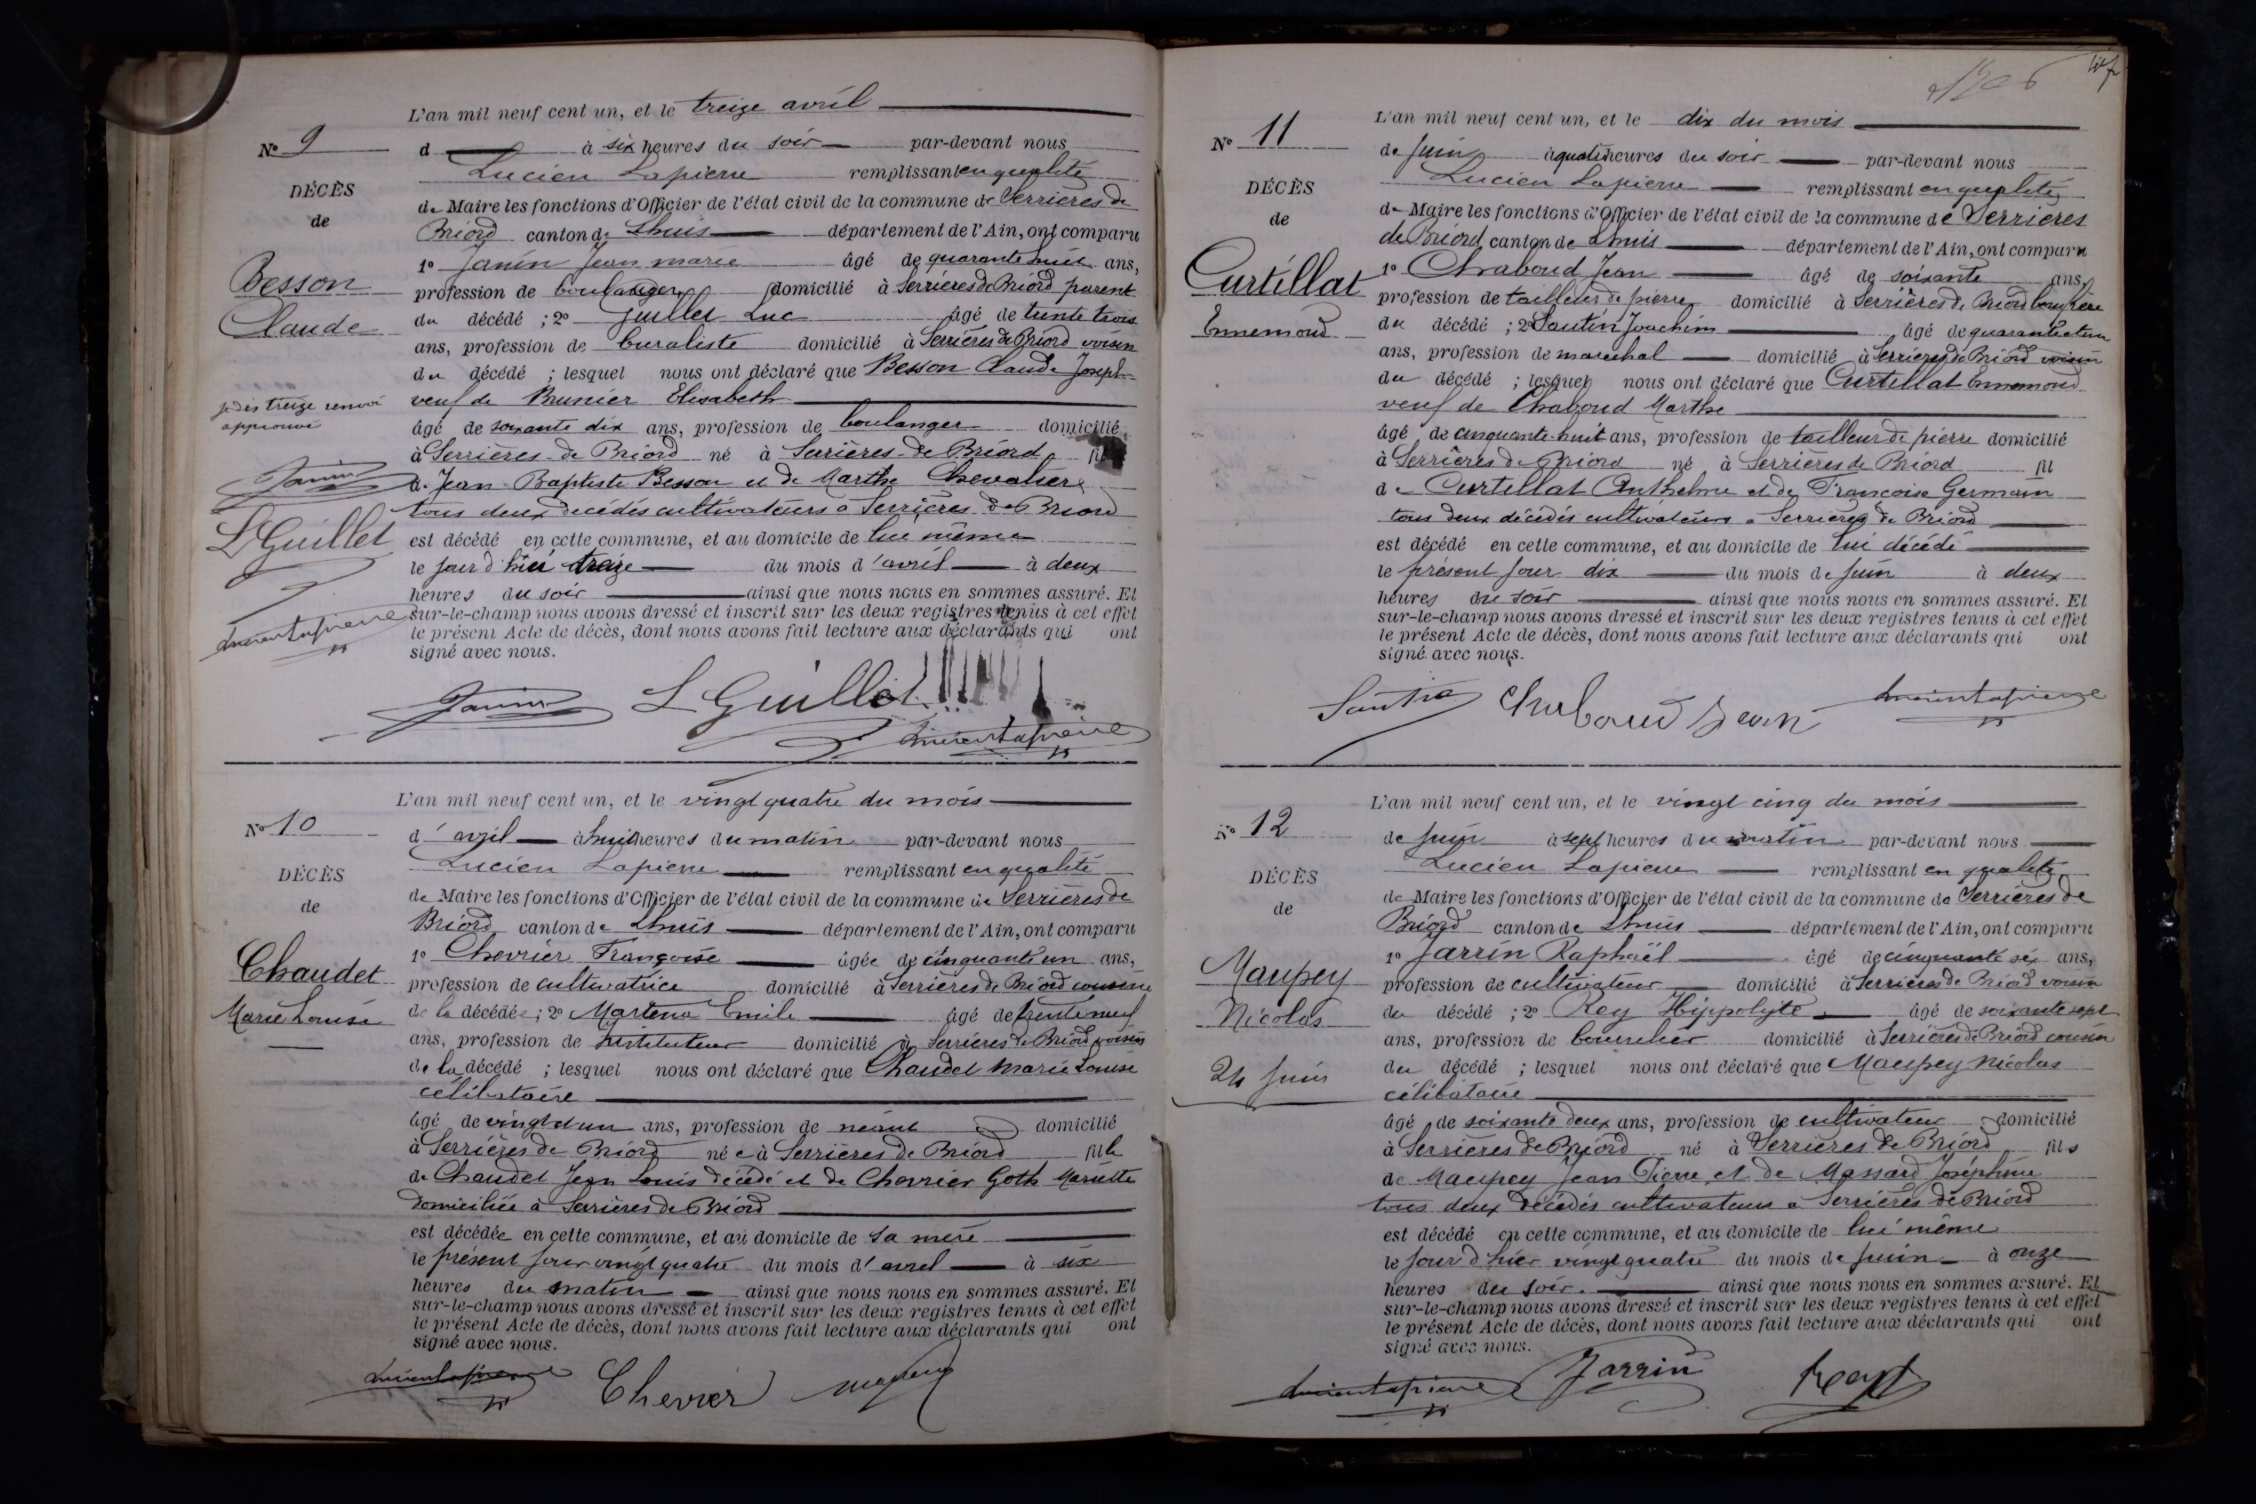 L'an mil neuf cent un, et le treize avril
N° 9
d à six heures du soir par-devant nous
Lucien Lapierre remplissant en qualité
DÉCÈS
de Maire les fonctions d'Officier de l'état civil de la commune de Serrières de
de
Briord canton de Lhuis département de l'Ain, ont comparu
1° Janin Jean marie âgé de quarante huit ans,
Besson
profession de boulanger domicilié à Serrières de Briord parent
Claude
du décédé ; 2° Guillet Luc âgé de trente trois
ans, profession de buraliste domicilié à Serrières de Briord voisin
du décédé ; lesquel nous ont déclaré que Besson Claude Joseph
veuf de Brunier Elisabeth
je dis treize renvoi
approuvé
âgé de soixante dix ans, profession de boulanger domicilié
à Serrières de Briord né à Serrières de Briord fil
Janin
de Jean Baptiste Besson et de Marthe Chevalier
tous deux decédés cultivateurs à Serrières de Briord
L Guillet
est décédé en cette commune, et au domicile de lui même
le jour d'hui treize du mois d'avril à deux
heures du soir ainsi que nous nous en sommes assuré. Et
sur-le-champ nous avons dressé et inscrit sur les deux registres tenus à cet effet
Lucien Lapierre
le présent Acte de décès, dont nous avons fait lecture aux déclarants qui ont
signé avec nous.
Janin L Guillet
Lucien Lapierre
L'an mil neuf cent un, et le vingt quatre du mois
N° 10
d'avril à huit heures du matin par-devant nous
Lucien Lapierre remplissant en qualité
DÉCÈS
de Maire les fonctions d'Officier de l'état civil de la commune de Serrières de
de
Briord canton de Lhuis département de l'Ain, ont comparu
1° Chevrier Françoise âgée de cinquante un ans,
Chaudet
profession de cultivatrice domicilié à Serrières de Briord cousine
Marie Louise
de la décédée ; 2° Emile âgé de trente neuf
ans, profession de instituteur domicilié à Serrières de Briord voisin
de la décédé ; lesquel nous ont déclaré que Chaudet Marie Louise
célibataire
âgé de vingt et un ans, profession de néant domicilié
à Serrières de Briord née à Serrières de Briord fille
de Chaudet Jean Louis décédé et de Chevrier Goth Mariette
domiciliée à Serrières de Briord
est décédée en cette commune, et au domicile de sa mère
le présent jour vingt quatre du mois d'avril à six
heures du matin ainsi que nous nous en sommes assuré. Et
sur-le-champ nous avons dressé et inscrit sur les deux registres tenus à cet effet
le présent Acte de décès, dont nous avons fait lecture aux déclarants qui ont
signé avec nous.
Lucien Lapierre Chevrier
L'an mil neuf cent un, et le dix du mois
N° 11
de juin à quatre heures du soir par-devant nous
Lucien Lapierre remplissant en qualité
DÉCÈS
de Maire les fonctions d'Officier de l'état civil de la commune de Serrières
de
de Briord canton de Lhuis département de l'Ain, ont comparu
Curtillat
1° Chaboud Jean âgé de soixante ans,
profession de tailleur de pierre domicilié à Serrières de Briord beau frère
Ennemond
du décédé ; 2° Santin Joachim âgé de quarante et un
ans, profession de maréchal domicilié à Serrières de Briord voisin
du décédé ; lesquel nous ont déclaré que Curtillat Ennemond
veuf de Chaboud Marthe
âgé de cinquante-huit ans, profession de tailleur de pierre domicilié
à Serrières de Briord né à Serrières de Briord fil
de Curtillat Anthelme et de Françoise Germain
tous deux décédés cultivateurs à Serrières de Briord
est décédé en cette commune, et au domicile de lui décédé
le présent jour dix du mois de juin à deux
heures du soir ainsi que nous nous en sommes assuré. Et
sur-le-champ nous avons dressé et inscrit sur les deux registres tenus à cet effet
le présent Acte de décès, dont nous avons fait lecture aux déclarants qui ont
signé avec nous.
Santin Chaboud Jean Lucien Lapierre
L'an mil neuf cent un, et le vingt cinq du mois
N° 12
de juin à sept heures du matin par-devant nous
Lucien Lapierre remplissant en qualité
DÉCÈS
de Maire les fonctions d'Officier de l'état civil de la commune de Serrières de
de
Briord canton de Lhuis département de l'Ain, ont comparu
1° Jarrin Raphaël âgé de cinquante six ans,
Maupey
profession de cultivateur domicilié à Serrières de Briord voisin
Nicolas
du décédé ; 2° Rey Hippolyte âgé de soixante sept
ans, profession de bourrelier domicilié à Serrières de Briord cousin
24 juin
du décédé ; lesquel nous ont déclaré que Maupey Nicolas
célibataire
âgé de soixante deux ans, profession de cultivateur domicilié
à Serrières de Briord né à Serrières de Briord fils
de Maupey Jean Pierre et de Massard Joséphine
tous deux décédés cultivateurs à Serrières de Briord
est décédé en cette commune, et au domicile de lui même
le jour d'hier vingt quatre du mois de juin à onze
heures du soir. ainsi que nous nous en sommes assuré. Et
sur-le-champ nous avons dressé et inscrit sur les deux registres tenus à cet effet
le présent Acte de décès, dont nous avons fait lecture aux déclarants qui ont
signé avec nous.
Lucien Lapierre Jarrin Rey